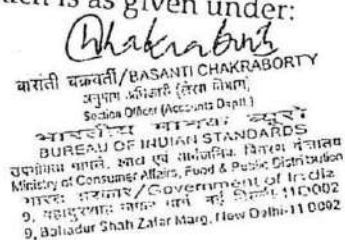 is as given under:
Chakraborty
बासंती चक्रवर्ती/BASANTI CHAKRABORTY
अनुभाग अधिकारी (लेखा विभाग)
Section Officer (Accounts Deptt.)
भारतीय मानक ब्यूरो
BUREAU OF INDIAN STANDARDS
उपभोक्ता मामले, खाद्य एवं सार्वजनिक वितरण मंत्रालय
Ministry of Consumer Affairs, Food & Public Distribution
भारत सरकार/Government of India
9, बहादुरशाह जफर मार्ग, नई दिल्ली-110002
9, Bahadur Shah Zafar Marg, New Delhi-110002